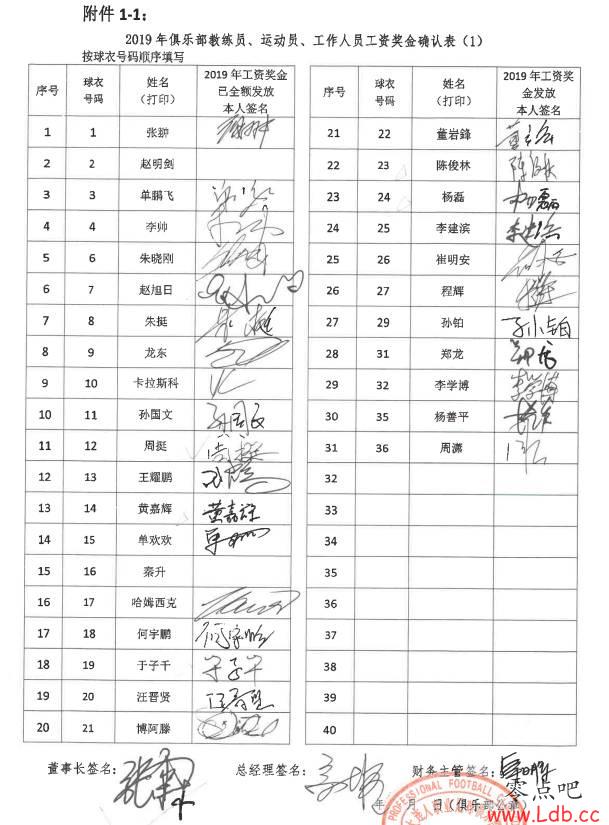 附件 1-1：
2019 年俱乐部教练员、运动员、工作人员工资奖金确认表（1）
按球衣号码顺序填写
序号 球衣号码 姓名（打印） 2019 年工资奖金已全额发放本人签名
1 1 张翀
2 2 赵明剑
3 3 单鹏飞
4 4 李帅
5 6 朱晓刚
6 7 赵旭日
7 8 朱挺 朱挺
8 9 龙东
9 10 卡拉斯科
10 11 孙国文 孙国文
11 12 周挺
12 13 王耀鹏
13 14 黄嘉辉 黄嘉辉
14 15 单欢欢
15 16 秦升
16 17 哈姆西克
17 18 何宇鹏 何宇鹏
18 19 于子千 于子千
19 20 汪晋贤 汪晋贤
20 21 博阿滕
序号 球衣号码 姓名（打印） 2019 年工资奖金发放本人签名
21 22 董岩鋒
22 23 陈俊林 陈俊林
23 24 杨磊
24 25 李建滨 李建滨
25 26 崔明安
26 27 程辉
27 29 孙铂 孙小铂
28 31 郑龙 郑龙
29 32 李学博 李学博
30 35 杨善平
31 36 周潇
32
33
34
35
36
37
38
39
40
董事长签名：
总经理签名：
财务主管签名：
年 月 日（俱乐部公章）
PROFESSIONAL FOOTBALL C
零点吧
www.Ldb.cc